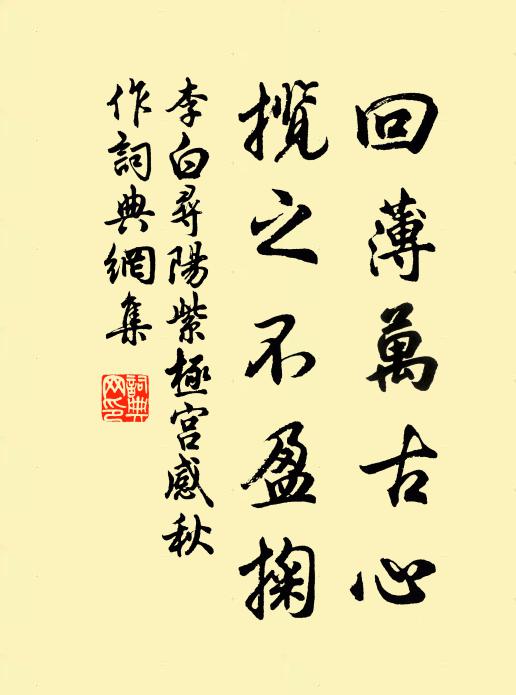 回薄萬古心
攬之不盈掬
李白尋陽紫極宮感秋
作詞典網集
詞典網印